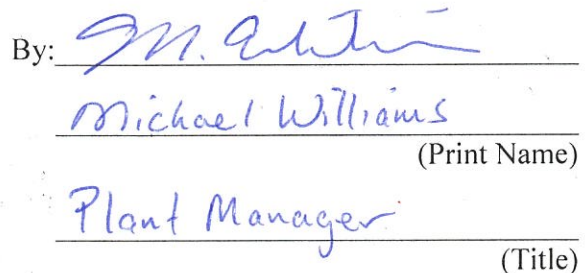 By:
Michael Williams
(Print Name)
Plant Manager
(Title)